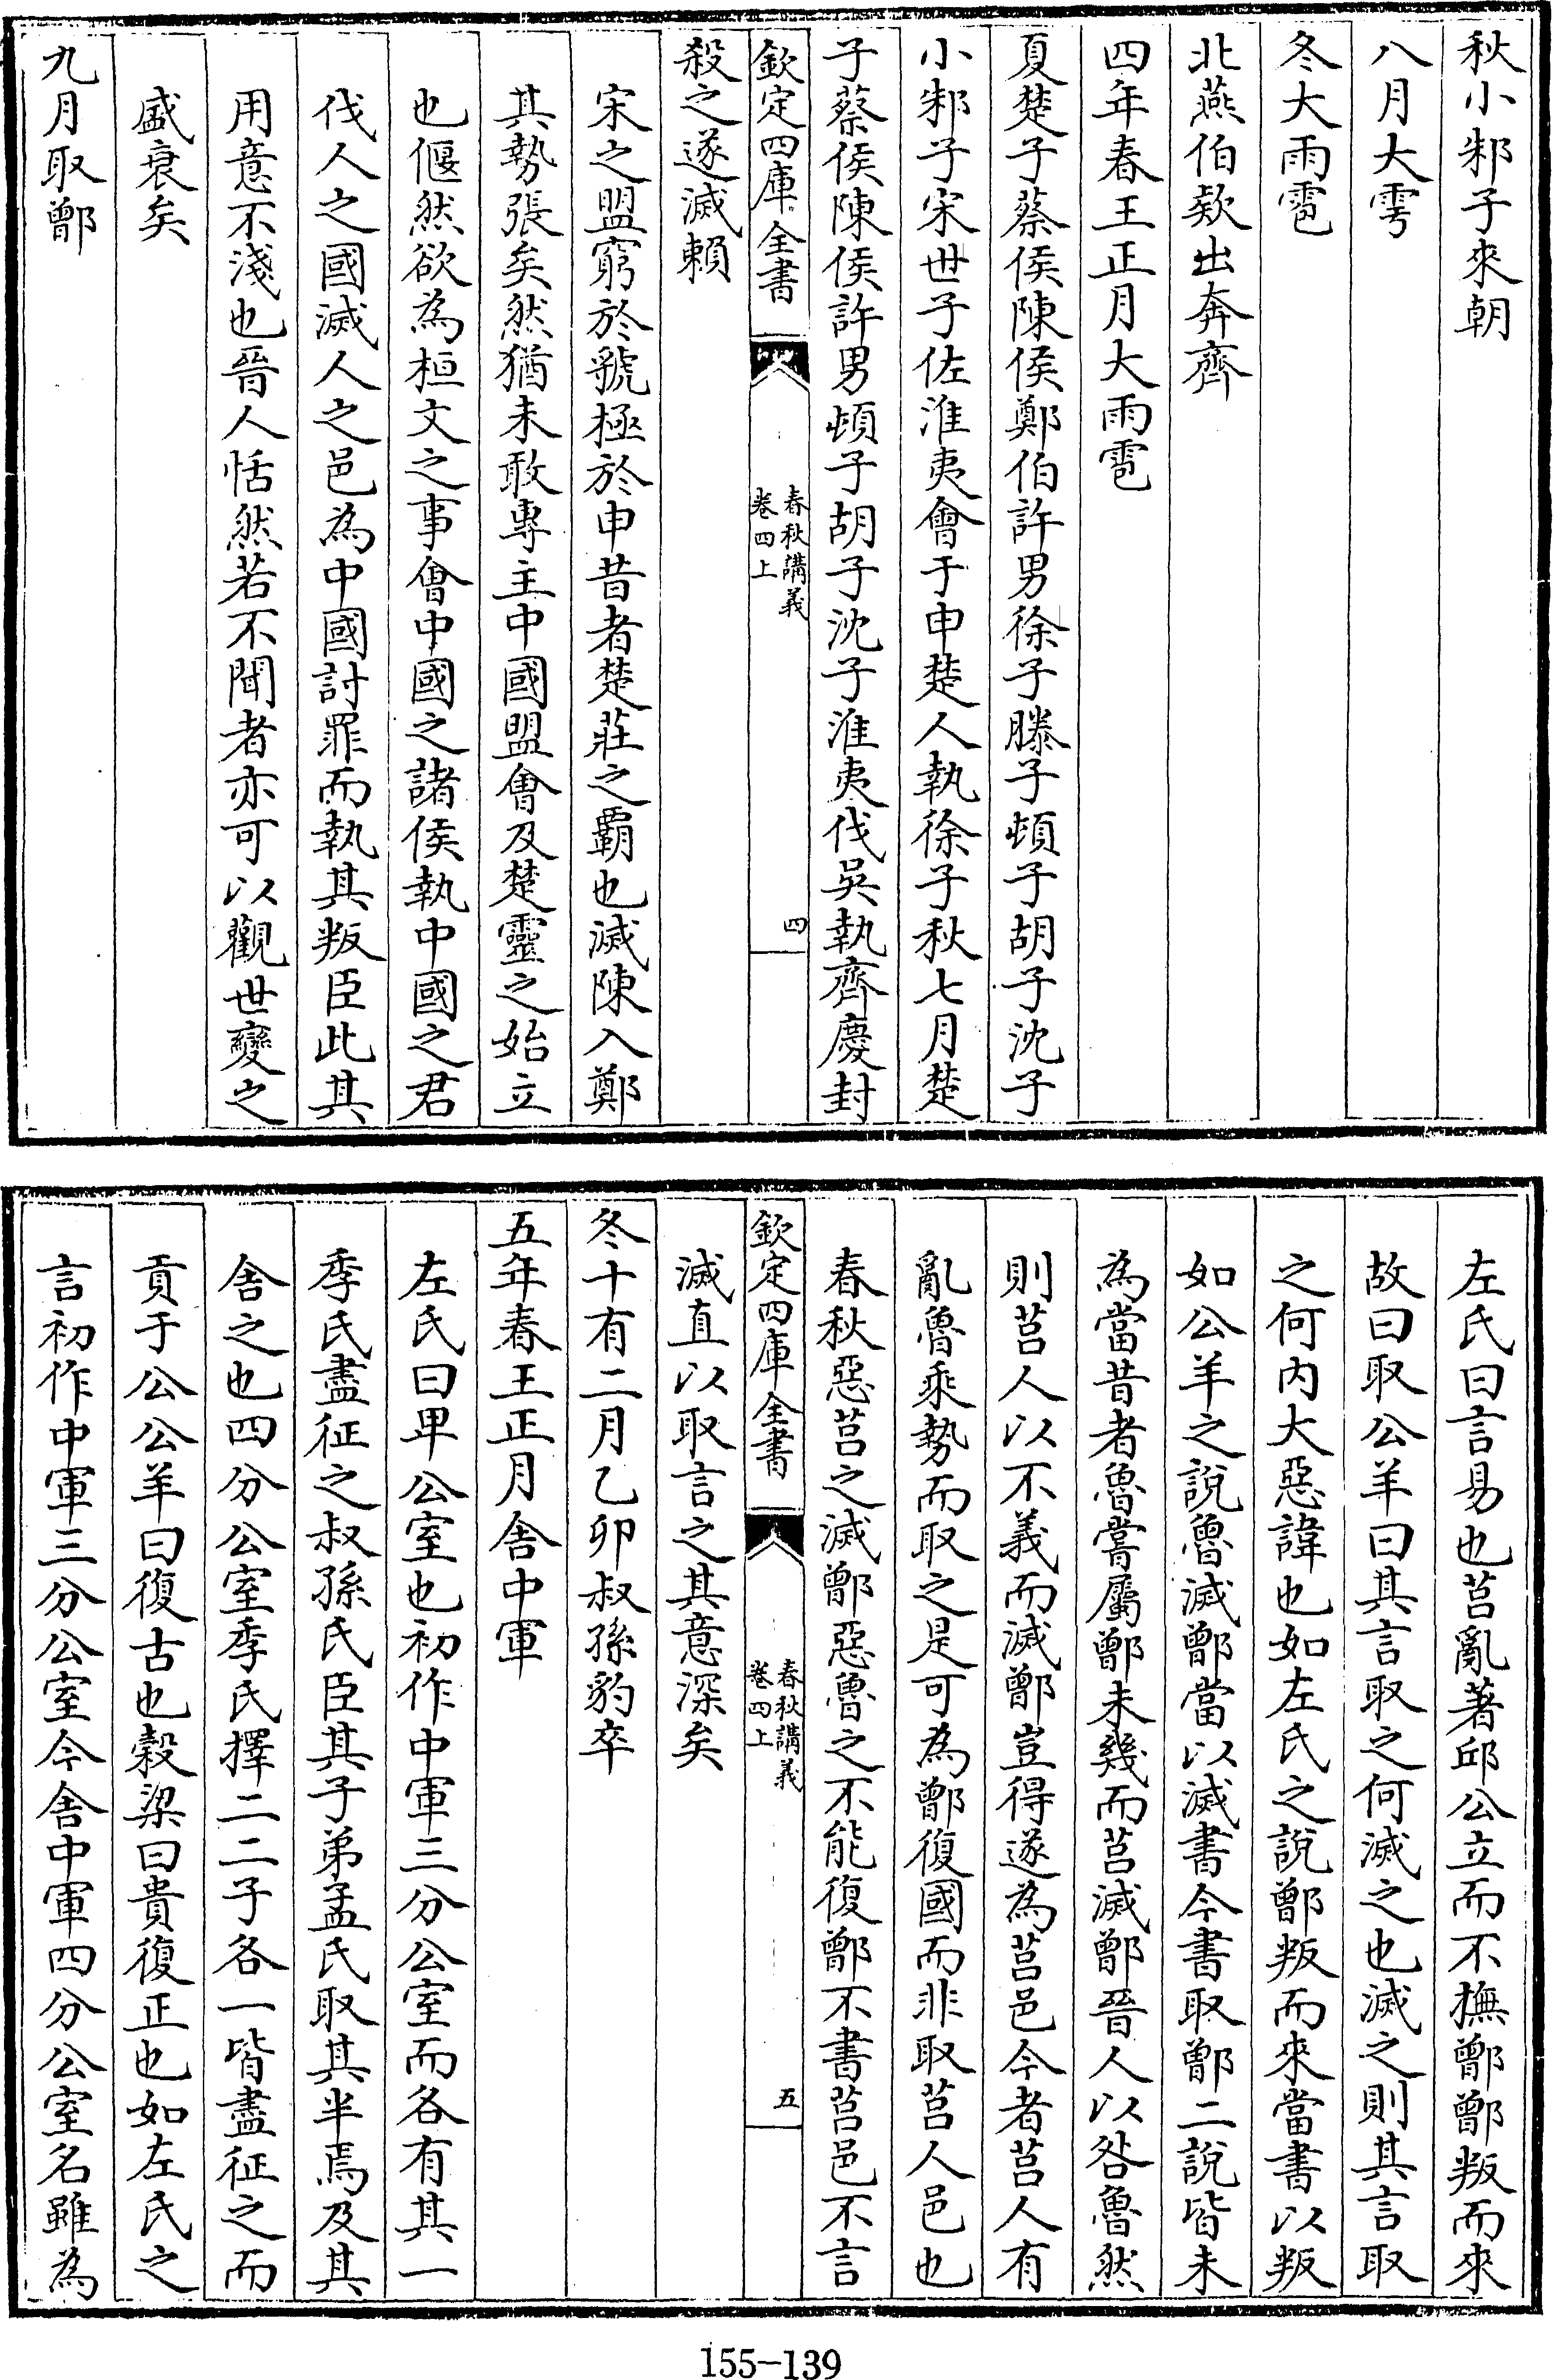 秋小邾子來朝
八月大雩
冬大雨雹
北燕伯欵出奔齊
四年春王正月大雨雹
夏楚子蔡侯陳侯鄭伯許男徐子滕子頓子胡子沈子
小邾子宋世子佐淮夷會于申楚人執徐子秋七月楚
子蔡侯陳侯許男頓子胡子沈子淮夷伐吳執齊慶封
欽定四庫全書
春秋講義
卷四上
四
殺之遂滅賴
宋之盟窮於虢極於申昔者楚莊之霸也滅陳入鄭
其勢張矣然猶未敢專主中國盟會及楚靈之始立
也偃然欲為桓文之事會中國之諸侯執中國之君
伐人之國滅人之邑為中國討罪而執其叛臣此其
用意不淺也晉人恬然若不聞者亦可以觀世變之
盛衰矣
九月取鄫
左氏曰言易也莒亂著邱公立而不撫鄫鄫叛而來
故曰取公羊曰其言取之何滅之也滅之則其言取
之何内大惡諱也如左氏之說鄫叛而來當書以叛
如公羊之說魯滅鄫當以滅書今書取鄫二說皆未
為當昔者魯嘗屬鄫未幾而莒滅鄫晉人以咎魯然
則莒人以不義而滅鄫豈得遂為莒邑今者莒人有
亂魯乘勢而取之是可為鄫復國而非取莒人邑也
春秋惡莒之滅鄫惡魯之不能復鄫不書莒邑不言
欽定四庫全書
春秋講義
卷四上
五
滅直以取言之其意深矣
冬十有二月乙卯叔孫豹卒
五年春王正月舍中軍
左氏曰卑公室也初作中軍三分公室而各有其一
季氏盡征之叔孫氏臣其子弟孟氏取其半焉及其
舍之也四分公室季氏擇二二子各一皆盡征之而
貢于公公羊曰復古也穀梁曰貴復正也如左氏之
言初作中軍三分公室今舍中軍四分公室名雖為
155-139